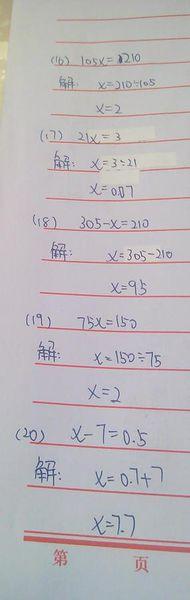 (16) 105x=210
解: x=210÷105
x=2
(17) 21x=3
解: x=3÷21
x=0.07
(18) 305-x=210
解: x=305-210
x=95
(19) 75x=150
解: x=150÷75
x=2
(20) x-7=0.5
解: x=0.7+7
x=7.7
第 页